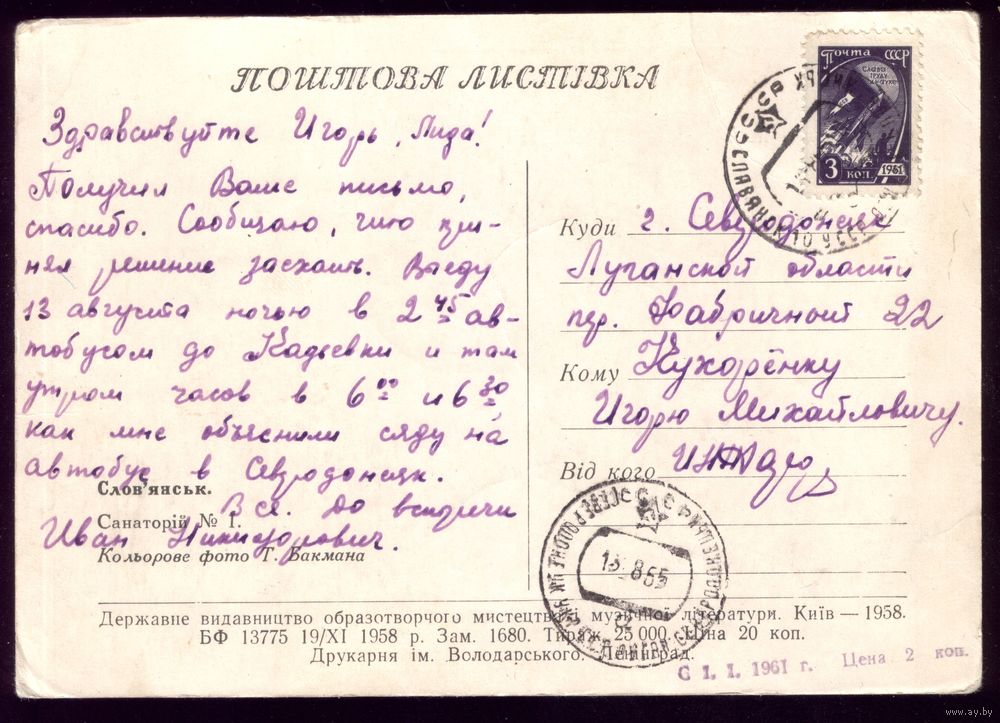 ПОШТОВА ЛИСТІВКА
Почта СССР
СЛАВА
ТРУДУ
И НАУКЕ
3 КОП. 1961
Здравствуйте Игорь, Лида!
Получил Ваше письмо,
спасибо. Сообщаю, что при-
нял решение заехать. Выеду
13 августа ночью в 2 45 ав-
тобусом до Кадиевки и там
утром часов в 6 00 и 6 30,
как мне объяснили сяду на
автобус в Севродонецк.
Все. До встречи
Иван Никифорович.
Слов'янськ.
Санаторій № 1.
Кольорове фото Г. Бакмана
Куди г. Севродонецк
Луганской области
пер. Фабричный 22
Кому Кухоренку
Игорю Михайловичу.
Від кого
13 8 65
Державне видавництво образотворчого мистецтва і музичної літератури. Київ — 1958.
БФ 13775 19/XI 1958 р. Зам. 1680. Тираж 25 000. Ціна 20 коп.
Друкарня ім. Володарського. Ленінград.
С 1. I. 1961 г. Цена 2 коп.
www.ay.by